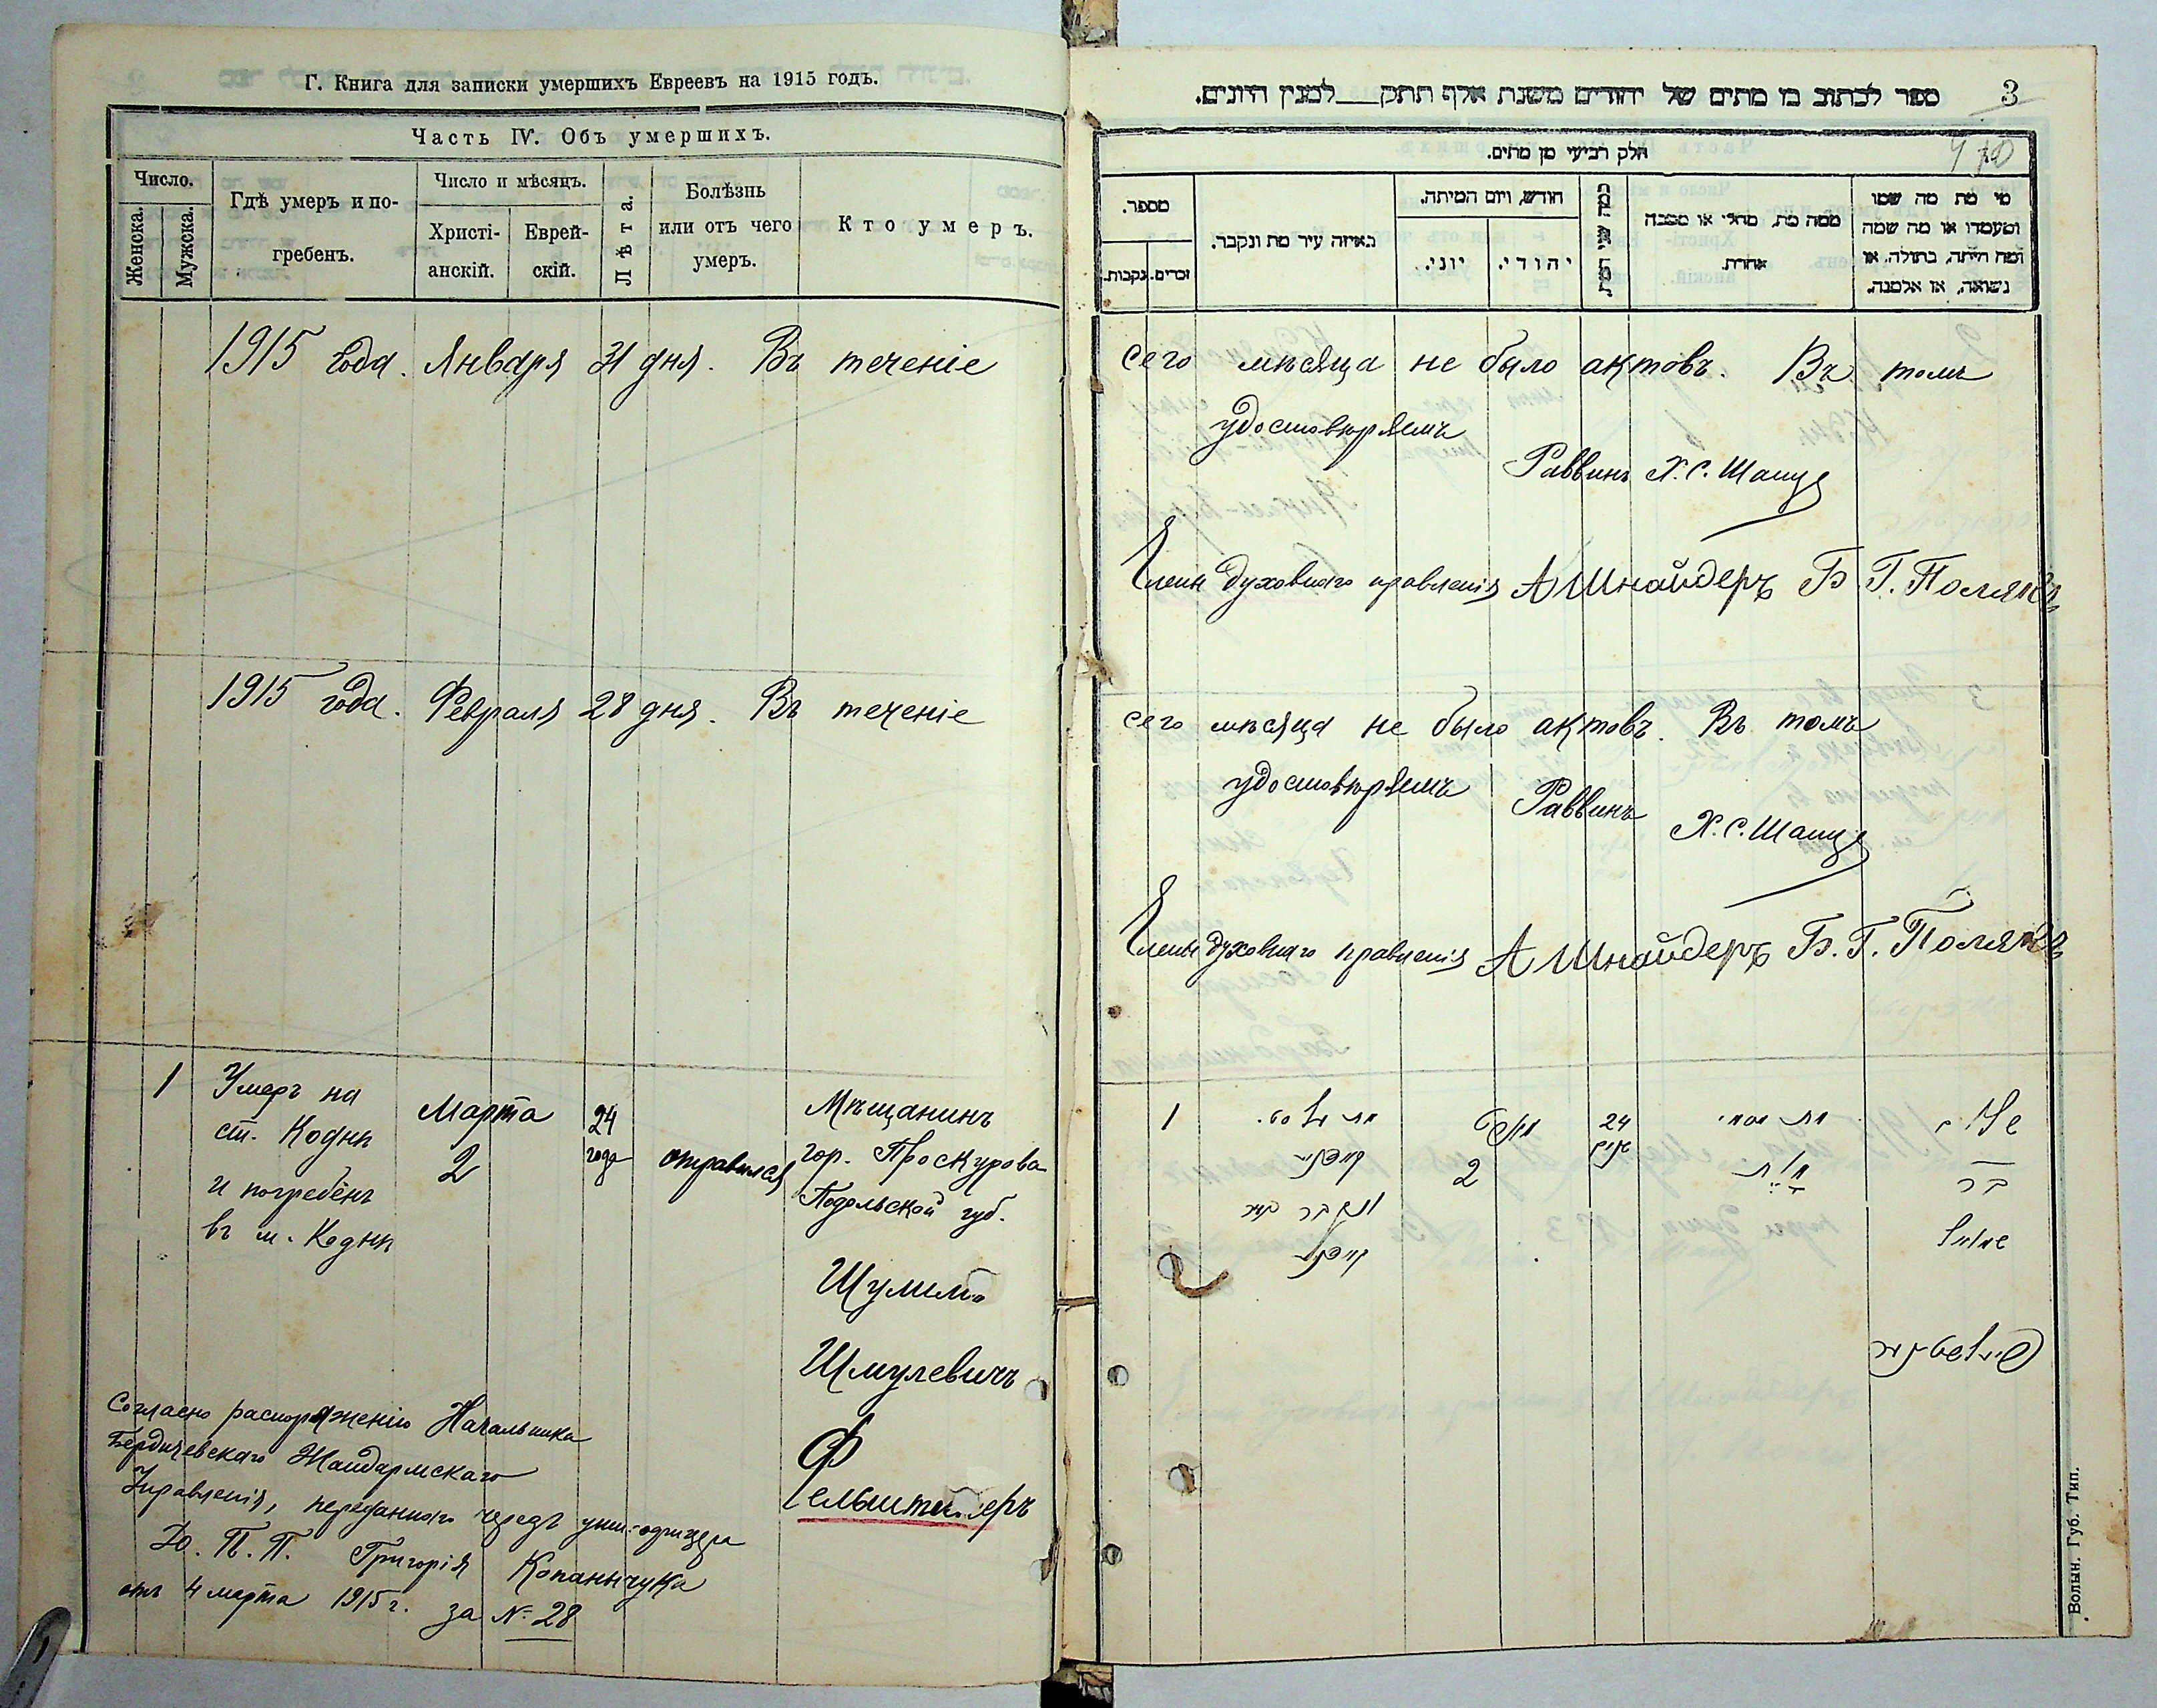 Г. Книга для записки умершихъ Евреевъ на 1915 годъ.
Часть IV. Объ умершихъ.
Число.
Женска.
Мужска.
Гдѣ умеръ и по-
гребенъ.
Число и мѣсяцъ.
Христі-
анскій.
Еврей-
скій.
Лѣта.
Болѣзнь
или отъ чего
умеръ.
Кто умеръ.
1915 года. Января 31 дня. Въ теченіе
1915 года. Февраля 28 дня. Въ теченіе
1
Умеръ на
ст. Кодня
и погребёнъ
въ м. Кодня
Марта
2
24
года
отравился
Мѣщанинъ
гор. Проскурова
Подольской губ.
Шулимъ
Шмулевичъ
Фельштинеръ
Согласно распоряженію Начальника
Бердичевскаго Жандармскаго
Управленія, переданнаго черезъ унт.-офицера
Ю. П. П. Григорія Копанчука
отъ 4 марта 1915 г. за № 28
3
ספר לכתוב בו מתים של יהודים משנת אלף תתק למנין היונים.
חלק רביעי מן מתים.
מספר.
זכרים.
נקבות.
באיזה עיר מת ונקבר.
חודש, ויום המיתה.
יוני.
יהודי.
כמה שני המת
ממה מת, מחלי או מסבה
אחרת.
מי מת מה שמו
ומעמדו או מה שמה
ומה היתה, בתולה, או
נשואה, או אלמנה.
сего мѣсяца не было актовъ. Въ томъ
удостовѣряемъ
Раввинъ Х. С.
Члены духовнаго правленія А Шнайдеръ Б. Г. Полякъ
сего мѣсяца не было актовъ. Въ томъ
удостовѣряемъ
Раввинъ
Х. С.
Члены духовнаго правленія А Шнайдеръ Б. Г. Полякъ
1
2
24
שנים
בר
שמואל
Волын. Губ. Тип.